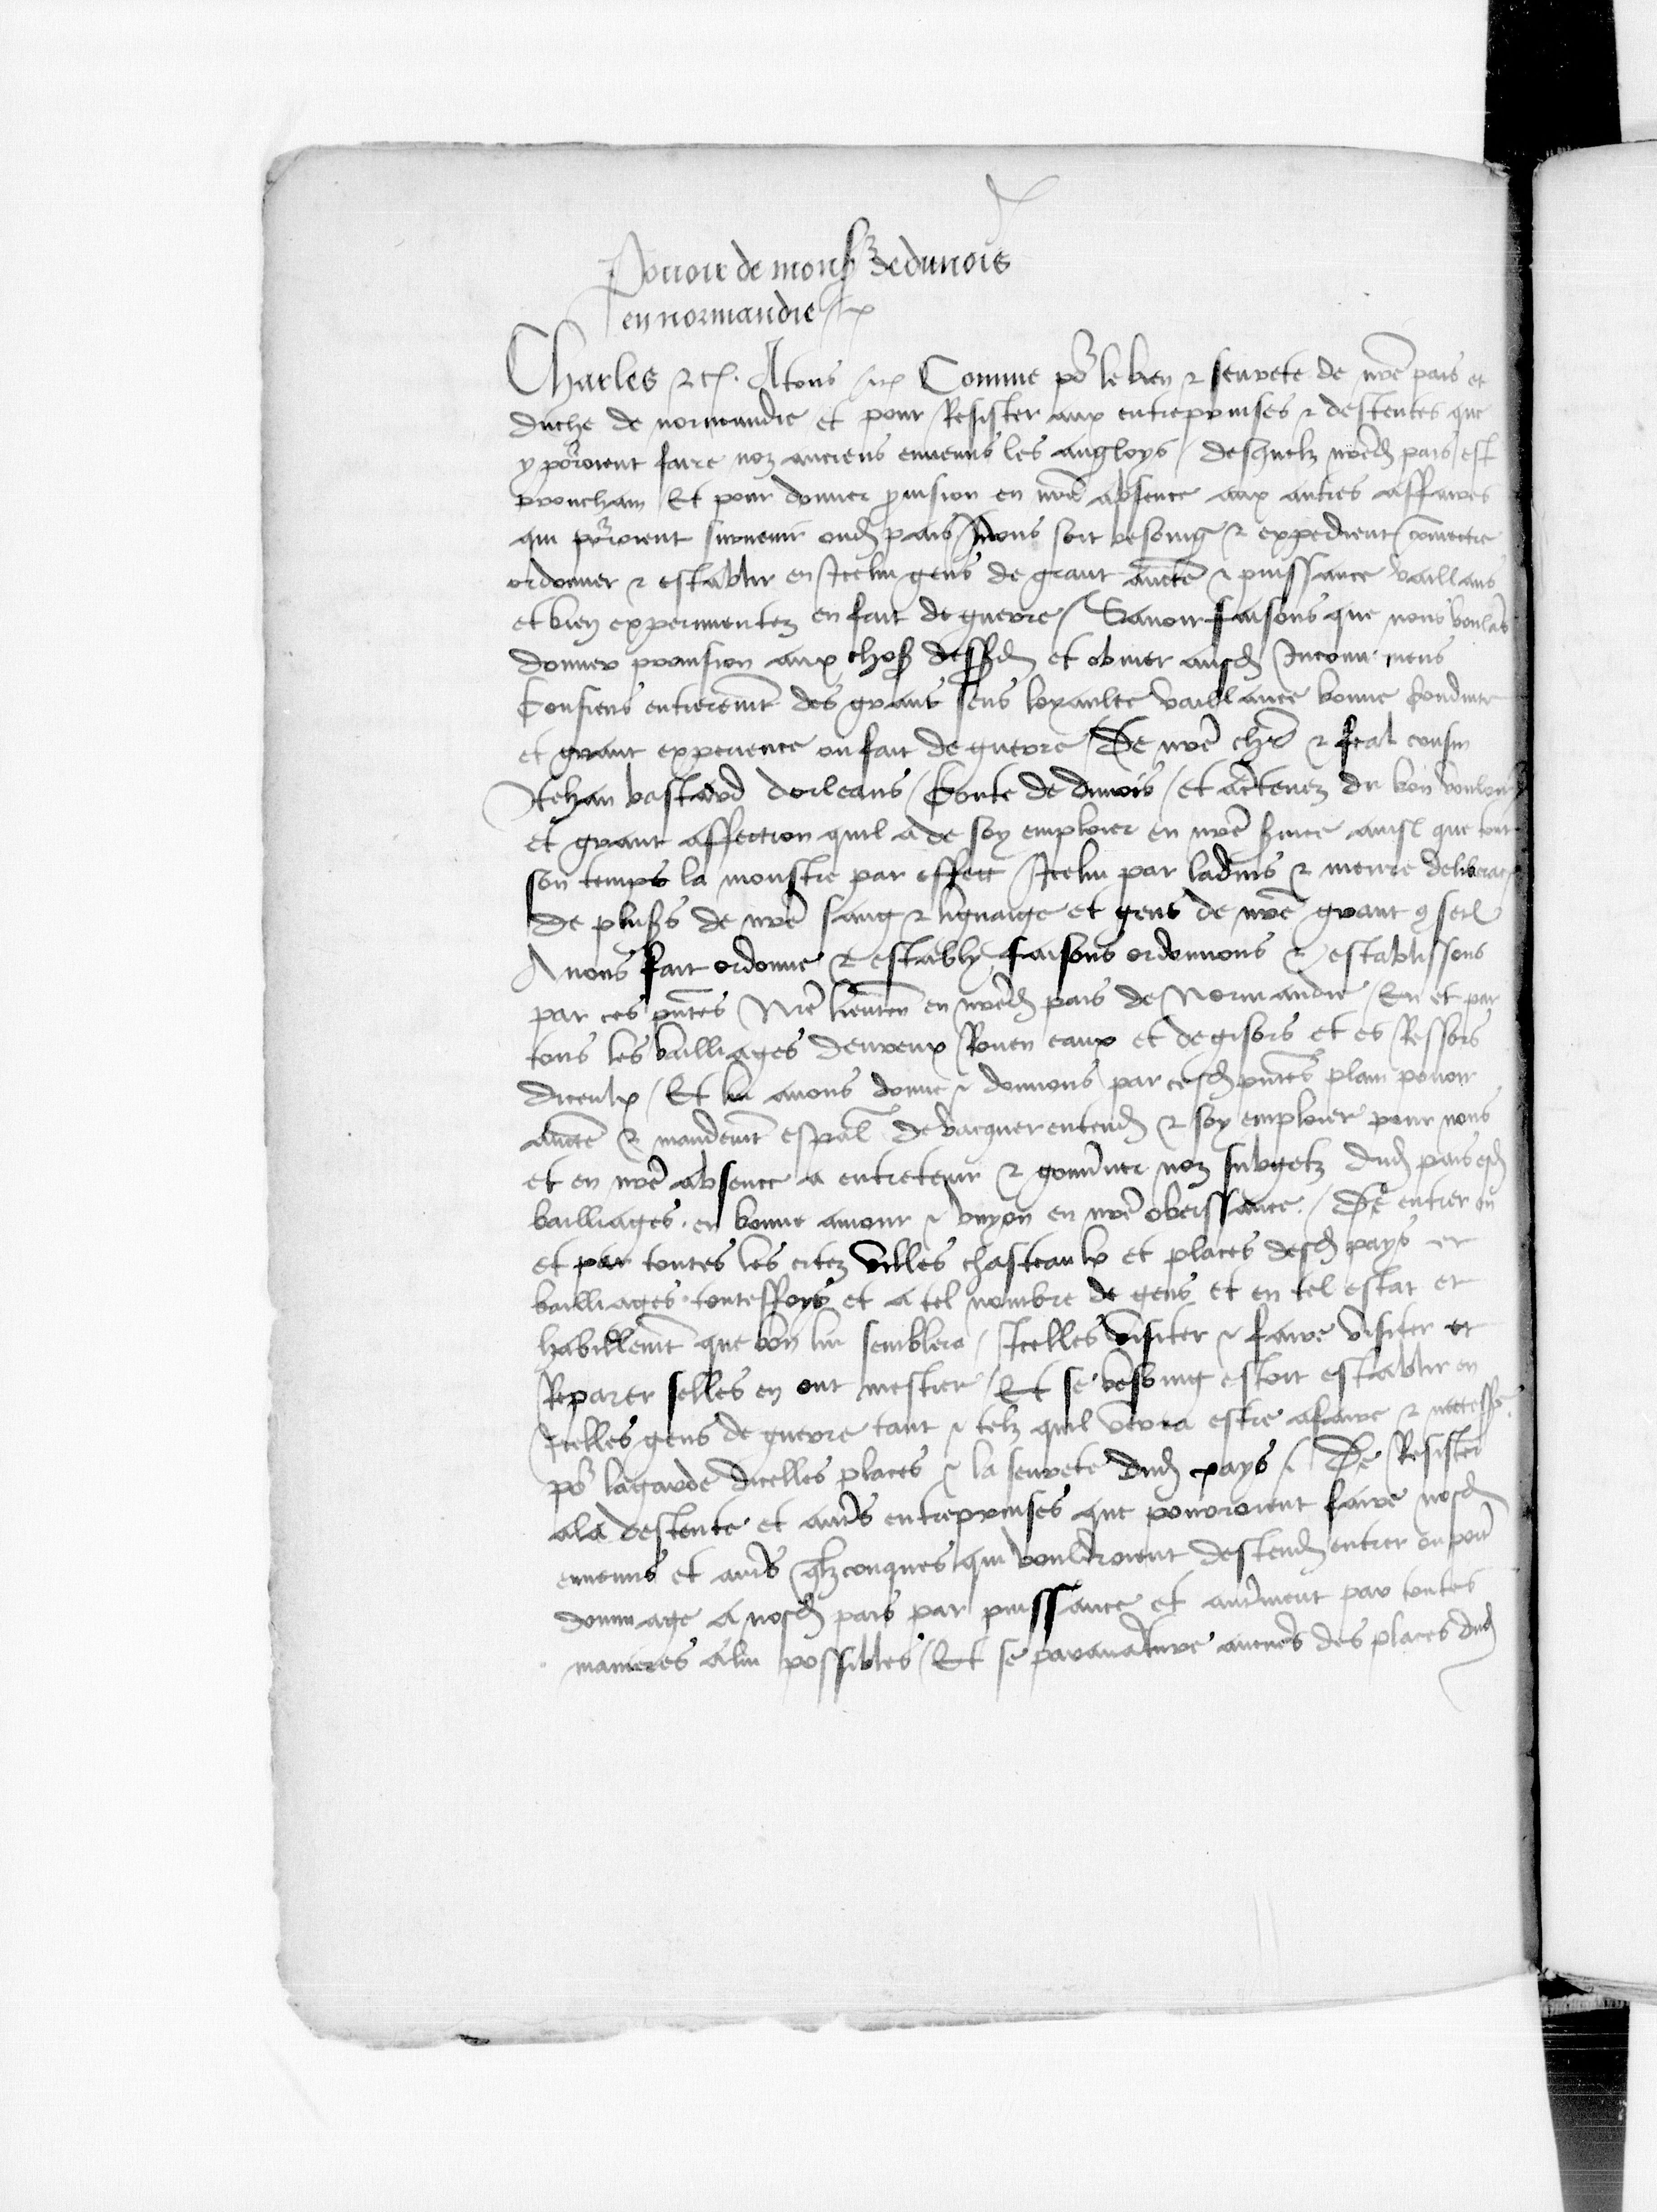 Pouoir de mons^r de dunois
en normandie etc
Charles etc. A tous etc Comme po^r le bien & seurete de n̄re pais et
duche de normandie et pour Resister aux entreprinses & descentes que
y po^rroient faire noz anciens ennemis les angloys / desquelz n̄red pais est
prouchain Et pour donner prouision en n̄re absence aux autres affaires
qui po^rroient suruenir oud pais / Nous soit besoing & expedient com̄ectre
ordonner & establir en Icelui gens de grant auct̄e & puissance vaillans
et bien experimentez en fait de guerre / Sauoir faisons que nous voulās
donner prouision aux choses dessusd et obuier ausd Inconuenⁱens
Confiens entierem̄t des grans sens loyaulte vaillance bonne conduite
et grant experience ou fait de guerre / De n̄re ch̄r & feal cousin
Jehan bastard dorleans / Conte de dunois / et actenez du bon vouloir
et grant affection quil a de soy emploier en n̄re s̄uice ainsi que tout
son temps la monstre par effect Icelui par laduis & meure deliberac̄
De plus̄s de n̄re sang & lignaige et gens de n̄re grant 9seil
Auons fait ordonne & estably faisons ordonnons & establissons
par ces pn̄tes N̄re lieuten̄ en n̄red pais de Normandie / En et par
tous les bailliages deureux Rouen caux et de gisors et es Ressors
diceulx / Et lui auons donne & donnons par cesd pn̄tes plain pouoir
auct̄e & mandem̄t esp̄al de vacquer entend̄ & soy emploier pour nous
et en n̄re absence a entretenir & gouūner noz subgetz dud pais esd
bailliages. en bonne amour & vnyon en n̄re obeissance. / De entrer en
et par toutes les citez villes chasteaulx et places desd pays et
bailliages. touteffoys et a tel nombre de gens et en tel estat et
habillem̄t que bon lui semblera / Icelles visiter & faire visiter et
Reparer selles en ont mestier / Et se besoing estoit establir en
Icelles gens de guerre tant & telz quil verra estre afaire & necess̄e.
po^r lagarde dicelles places & la seurete dud pays / De Resister
ala descente et aut̄s entreprinses que pourroient faire nosd
ennemis et aut̄s q̄lzconques qui vouldroient descend̄ entrer ou port̄
dommage a nosd pais par puissance et aut̄ment par toutes
manieres alui possibles / Et se parauāture aucun̄s des places dud